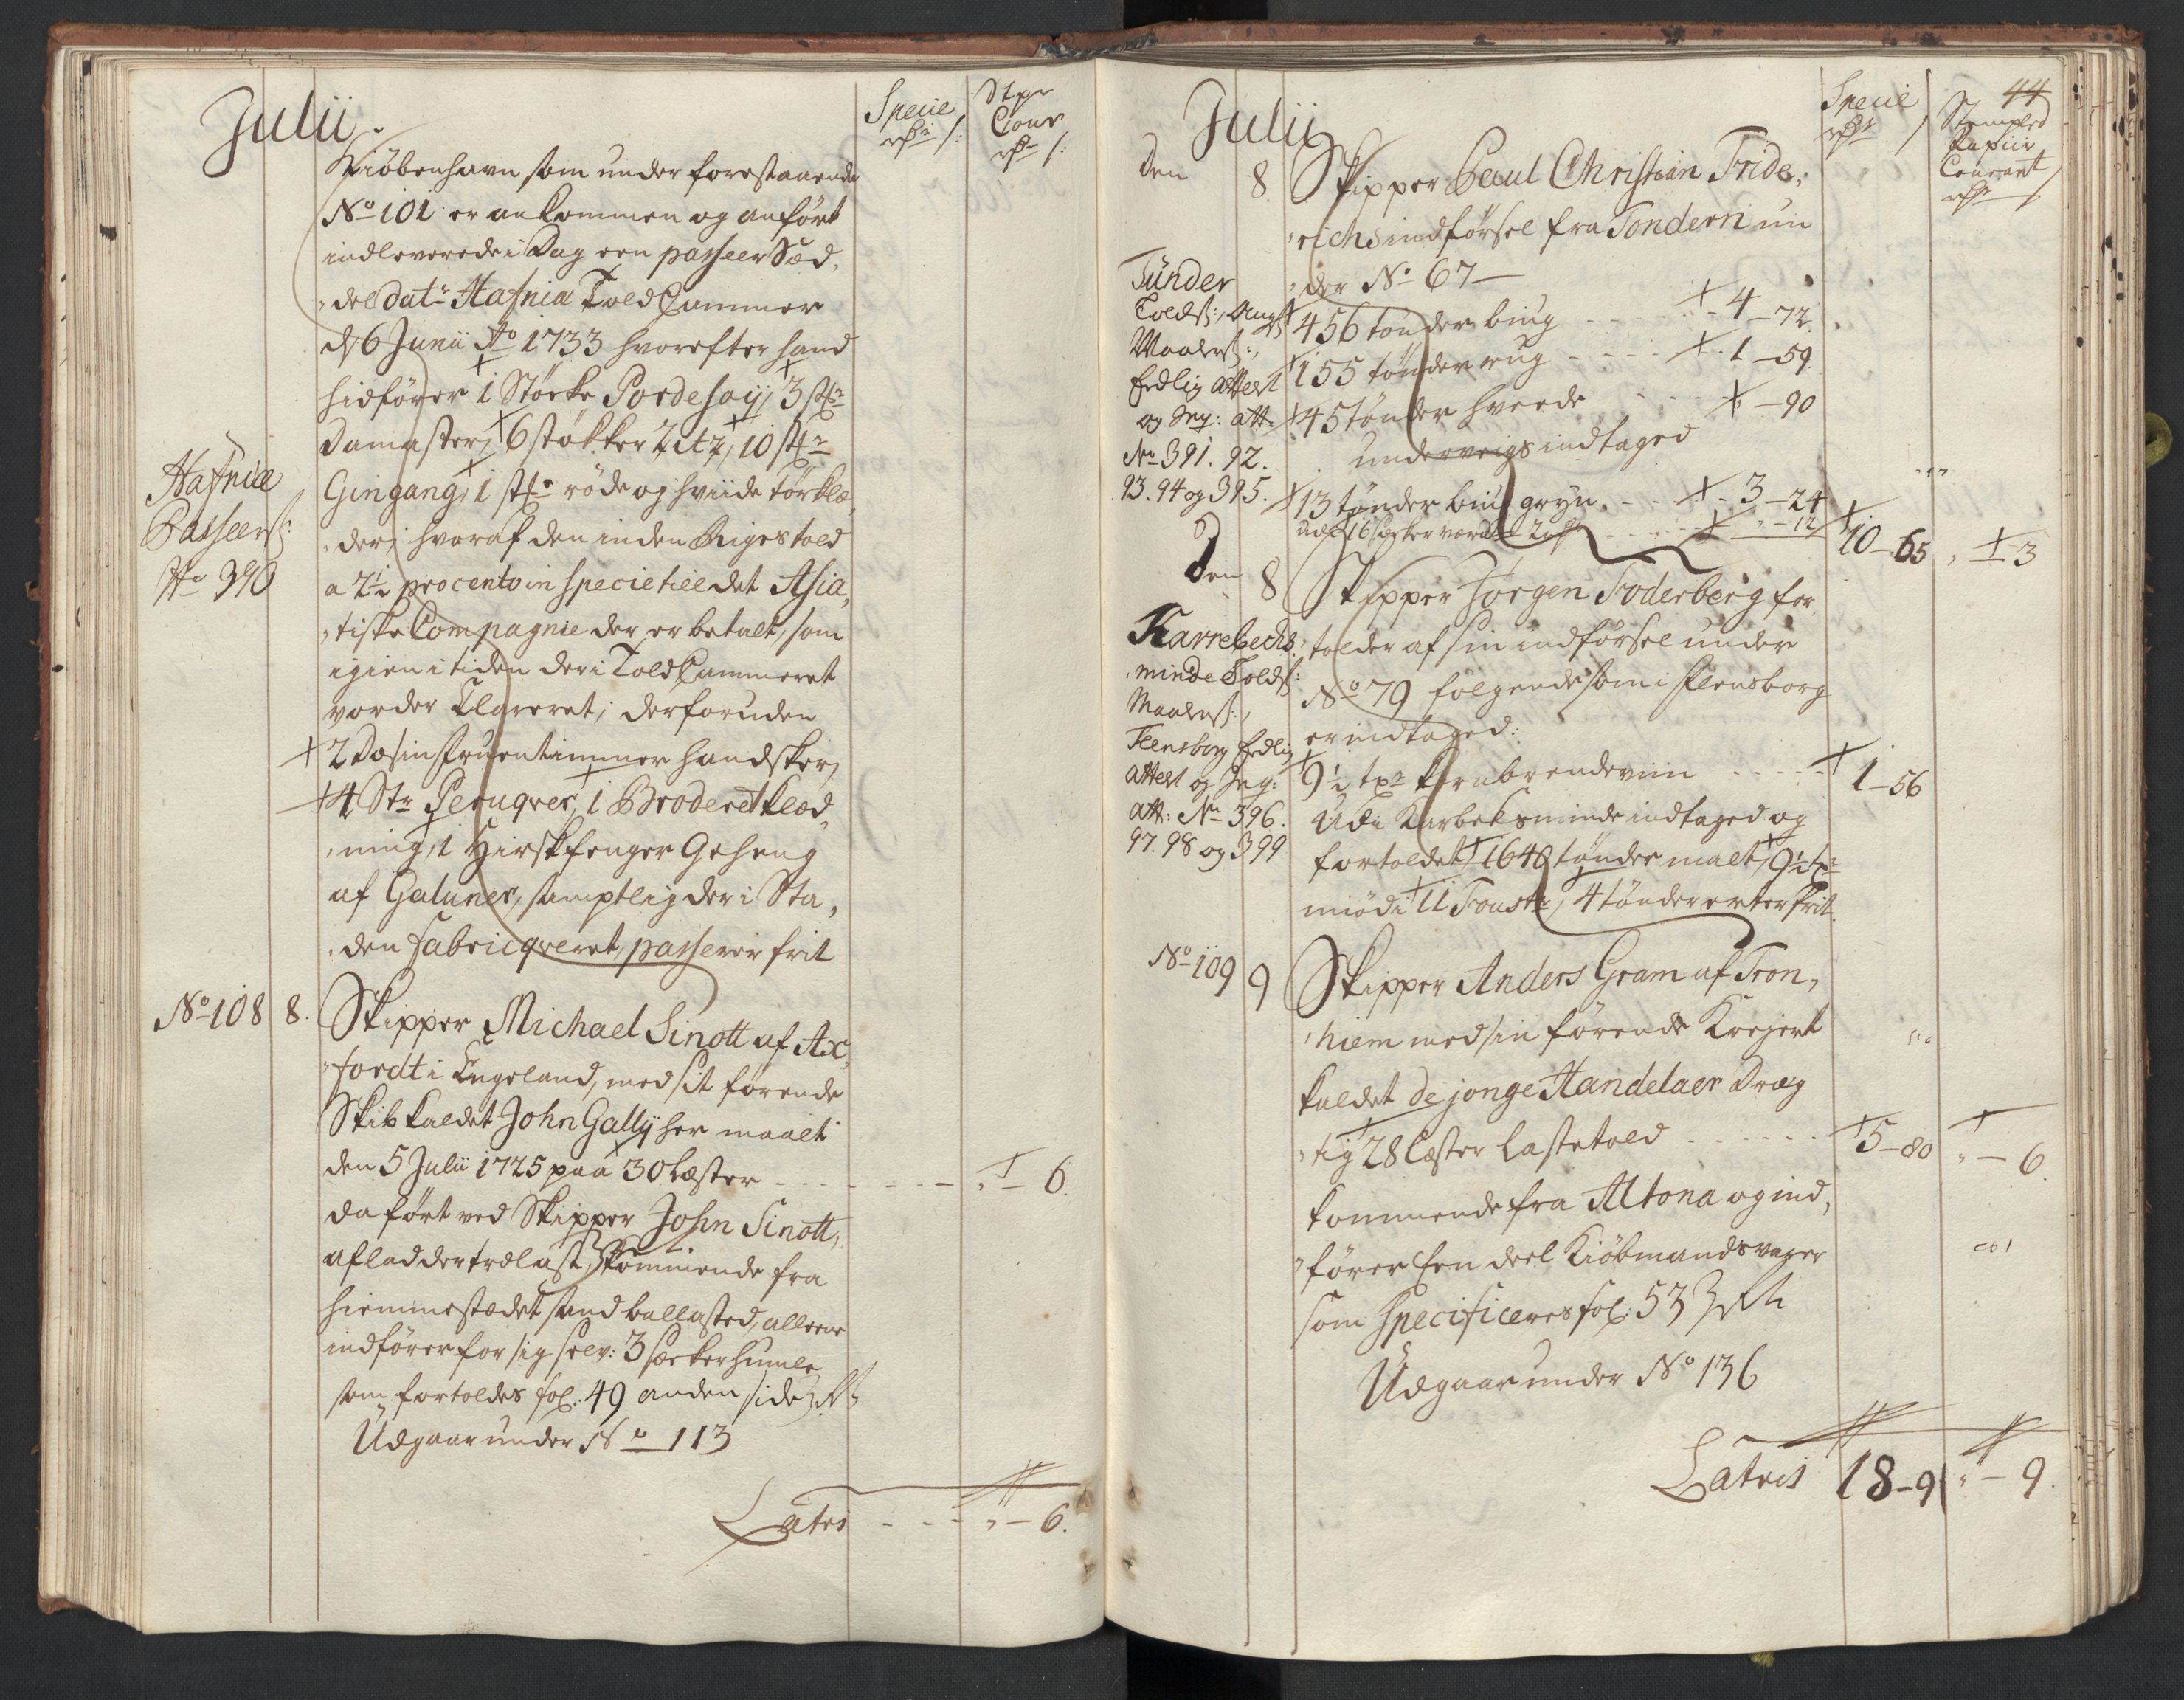 Julii.
Specie
rdr s:
Stpr
Cour
rdr s:
Kiöbenhavn som under forestaaende
No 101 er ankommen og anfört
indleverede i Dag een passeer Sed,
del dato Hafnia Told Cammer
d 6 Junii Ao 1733 hvorefter hand
hidförer 1 Störke Pordesoy, 3 stkr
Damaster, 6 stökker Zitz, 10 stkr
Gingang, 1 stkr röde og hviide törklæ,
der, hvoraf den inden Rigs told
a 2½ procento in specie till det Asia,
tiske Compagnie der er betalt, som
igien i tiden der i Told Cammeret
vorder Clareret; derforuden
2 Dosin fruentimmer handsker,
4 Str Peruqver, 1 Broderet klæd,
ning, 1 Hirskfenger Geheng
af Galuner, samptlig der i Sta,
den fabricqveret, passerer frit
Hafniæ
Passeers:
No 390
No 108 8.
Skipper Michael Sinott af Ax,
fordt i Engeland, med sit förende
Skib kaldet John Gallij her maalt
den 5 Julii 1725 paa 30 Læster - - - " - 6.
da fört ved Skipper John Sinott,
aflad der trælast, kommende fra
hiemmestædet sand ballasted, alleene
indförer for sig selv: 3 sække humle
som fortoldes fol: 49 anden side
Udgaar under No 113
Latus - - - " - 6.
44
Julii
Specie
rdr s
Stempled
Papiir
Courant
rdr s
Den 8
Skipper Paul Christian Fride,
richs indförsel fra Tondern un
der No 67 -
456 tönder biug - - - 4 - 72.
155 tönder rug - - - 1 - 59
45 tönder hvede - - - " - 90
underveigs indtaged
13 tönder biug gryn. - - 3 - 24
" - 12
10 - 65 " - 3
Tünder
Tolds:, Angs
Maalers:,
Edlig Attest
og Seg: att:
No 391. 92.
93. 94 og 395.
Den 8
Skipper Jörgen Foderberg for,
tolder af sin indförsel under
No 79 fölgende som i Flensborg
er indtaged:
9½ tr kornbrendeviin - - - - 1 - 56
Udi Karbeksminde indtaged og
fortoldet 1640 tönder malt, 9½ tr
miöd, 11 Foust, 4 tönder erter frit.
Karrebechs,
minde Tolds:
Maalers:,
Flensborg Edlig
Attest og Seg:
att: No 396.
97. 98 og 399
No 109 9
Skipper Anders Gram af Tron,
hiem med sin förende Krejert
kaldet de jonge Handelaer Dræg
tig 28 Læster lastetold - - - - - 5 - 80 " - 6.
kommende fra Altona og ind,
förer Een deel Kiöbmandsvarer
som Specificeres fol: 53
Udgaar under No 136
Latris 18 - 9 " - 9.